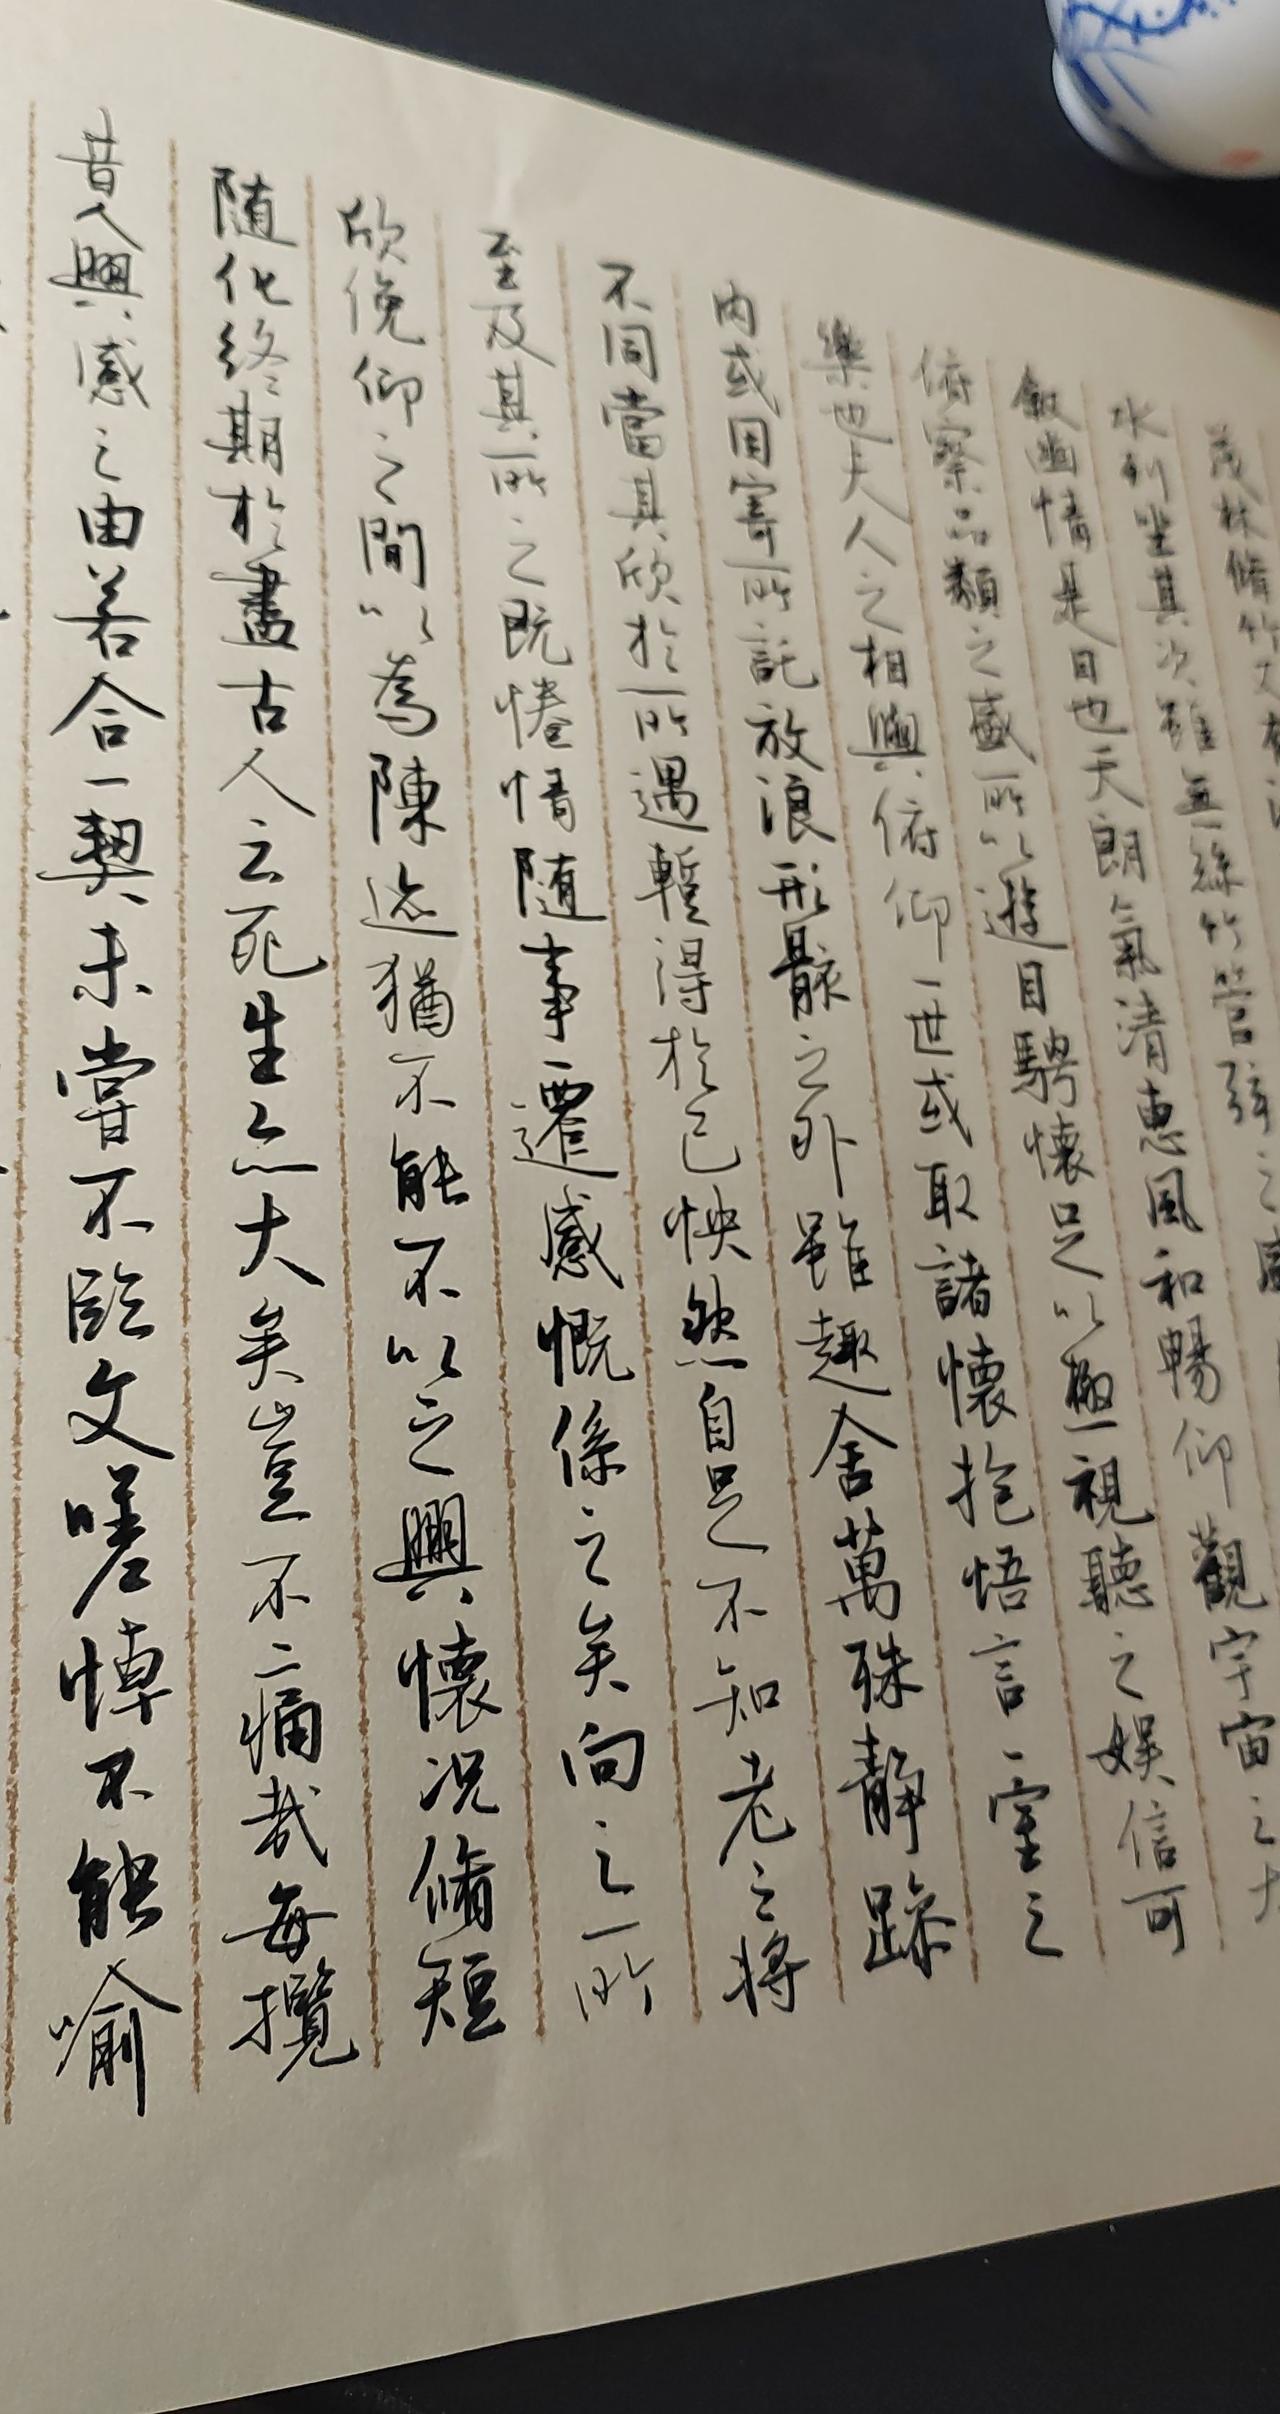 茂林脩竹又有清
水列坐其次雖無絲竹管弦之盛
敘幽情是日也天朗氣清惠風和暢仰觀宇宙之大
俯察品類之盛所以遊目騁懷足以極視聽之娛信可
樂也夫人之相與俯仰一世或取諸懷抱悟言一室之
內或因寄所託放浪形骸之外雖趣舍萬殊靜躁
不同當其欣於所遇暫得於己怏然自足不知老之將
至及其所之既惓情隨事遷感慨係之矣向之所
欣俛仰之間以為陳迹猶不能不以之興懷況脩短
隨化終期於盡古人云死生亦大矣豈不痛哉每攬
昔人興感之由若合一契未嘗不臨文嗟悼不能喻